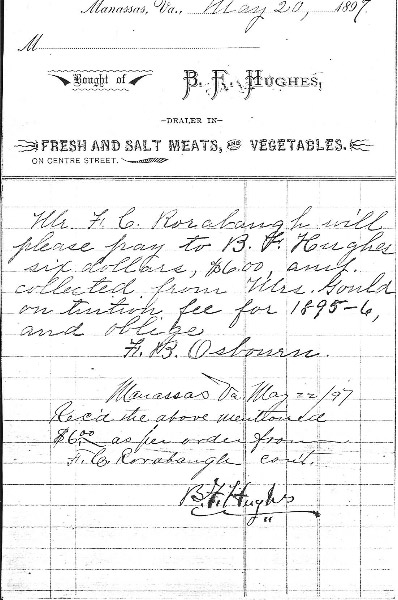 Manassas, Va., May 20, 1897
M
Bought of B. F. HUGHES,
—DEALER IN—
FRESH AND SALT MEATS, AND VEGETABLES.
ON CENTRE STREET.
Mr. F. C. Rorabaugh will
please pay to B. F. Hughes
six dollars, $6.00, amt.
collected from Mrs. Gould
on tuition fee for 1895-6,
and oblige
F. B. Osbourn.
Manassas Va May 22/97
Rec'd the above mentioned
$6.00 as per order from
F. C. Rorabaugh
B. F. Hughes